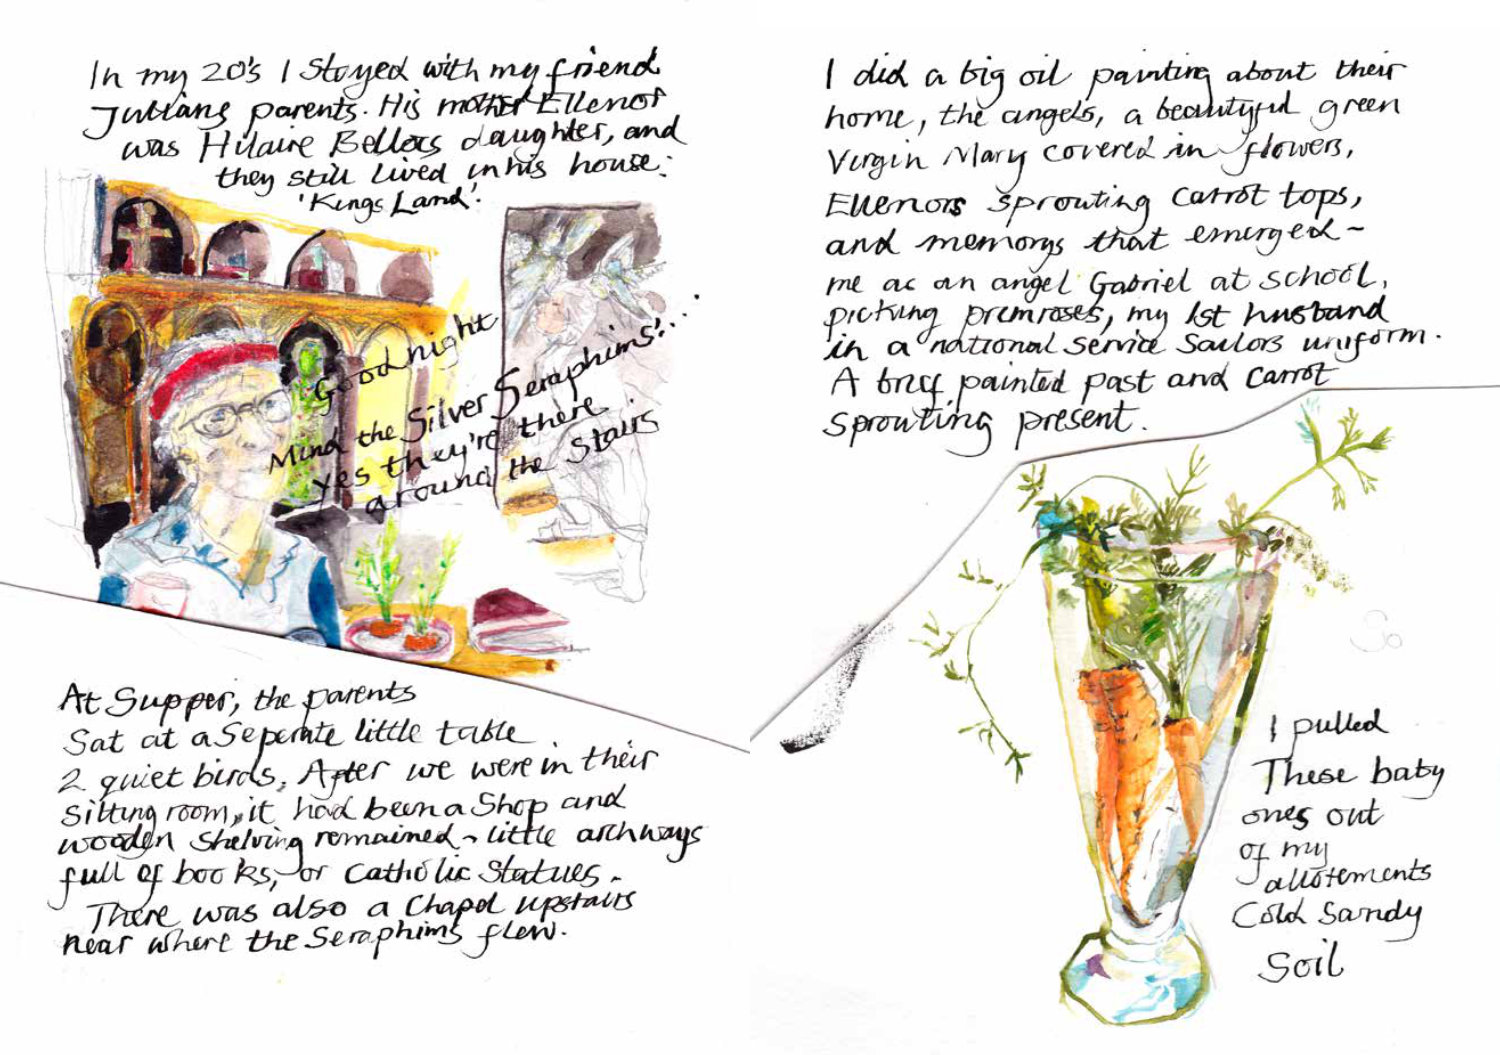 In my 20's I stayed with my friend
Julians parents. His mother Ellenor
was Hilaire Bellocs daughter, and
they still lived in his house:
'Kings Land'.
Good night
Mind the Silver Seraphims!...
yes they're there
around the Stairs.
At Supper, the parents
Sat at a Seperate little table
2 quiet birds. After we were in their
Sitting room, it had been a Shop and
wooden Shelving remained ~ little archways
full of books, or Catholic Statues.
There was also a Chapel upstairs
near where the Seraphims flew.
I did a big oil painting about their
home, the angels, a beautyful green
Virgin Mary covered in flowers,
Ellenors sprouting carrot tops,
and memorys that emerged ~
me as an angel Gabriel at school,
picking primroses, my 1st husband
in a national service Sailors uniform.
A painted past and carrot
Sprouting present.
So
I pulled
These baby
ones out
of my
allotements
Cold Sandy
Soil